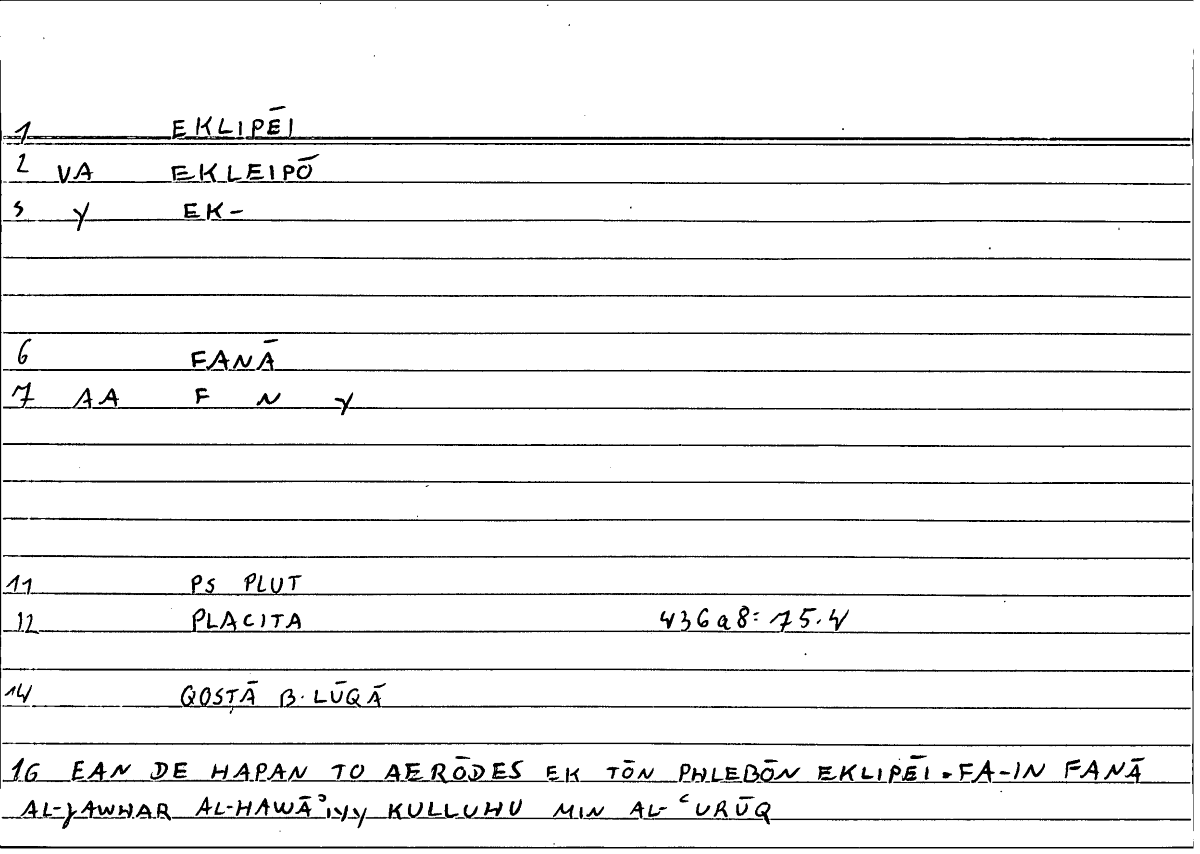 1 EKLIPĒI
2 VA EKLEIPŌ
3 Y EK-
6 FANĀ
7 AA F N Y
11 PS PLUT
12 PLACITA 436a8=75.4
14 QOSṬĀ B. LŪQĀ
16 EAN DE HAPAN TO AERŌDES EK TŌN PHLEBŌN EKLIPĒI = FA-IN FANĀ
AL-ǧAWHAR AL-HAWĀʾIyy KULLUHU MIN AL-ʿURŪQ